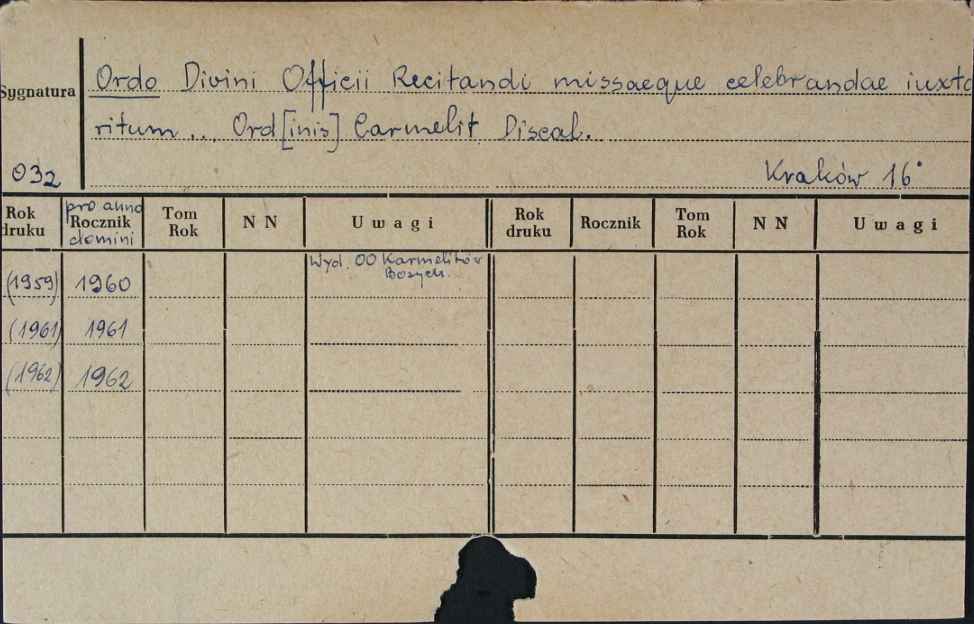 Sygnatura
Ordo Divini Officii Recitandi missaeque celebrandae iuxta
ritum .. Ord[inis] Carmelit Discal.
032
Kraków 16°
Rok druku pro anno Rocznik domini Tom Rok N N Uwagi Rok druku Rocznik Tom Rok N N Uwagi
(1959) 1960 Wyd. OO Karmelitów Bosych.
(1961) 1961
(1962) 1962